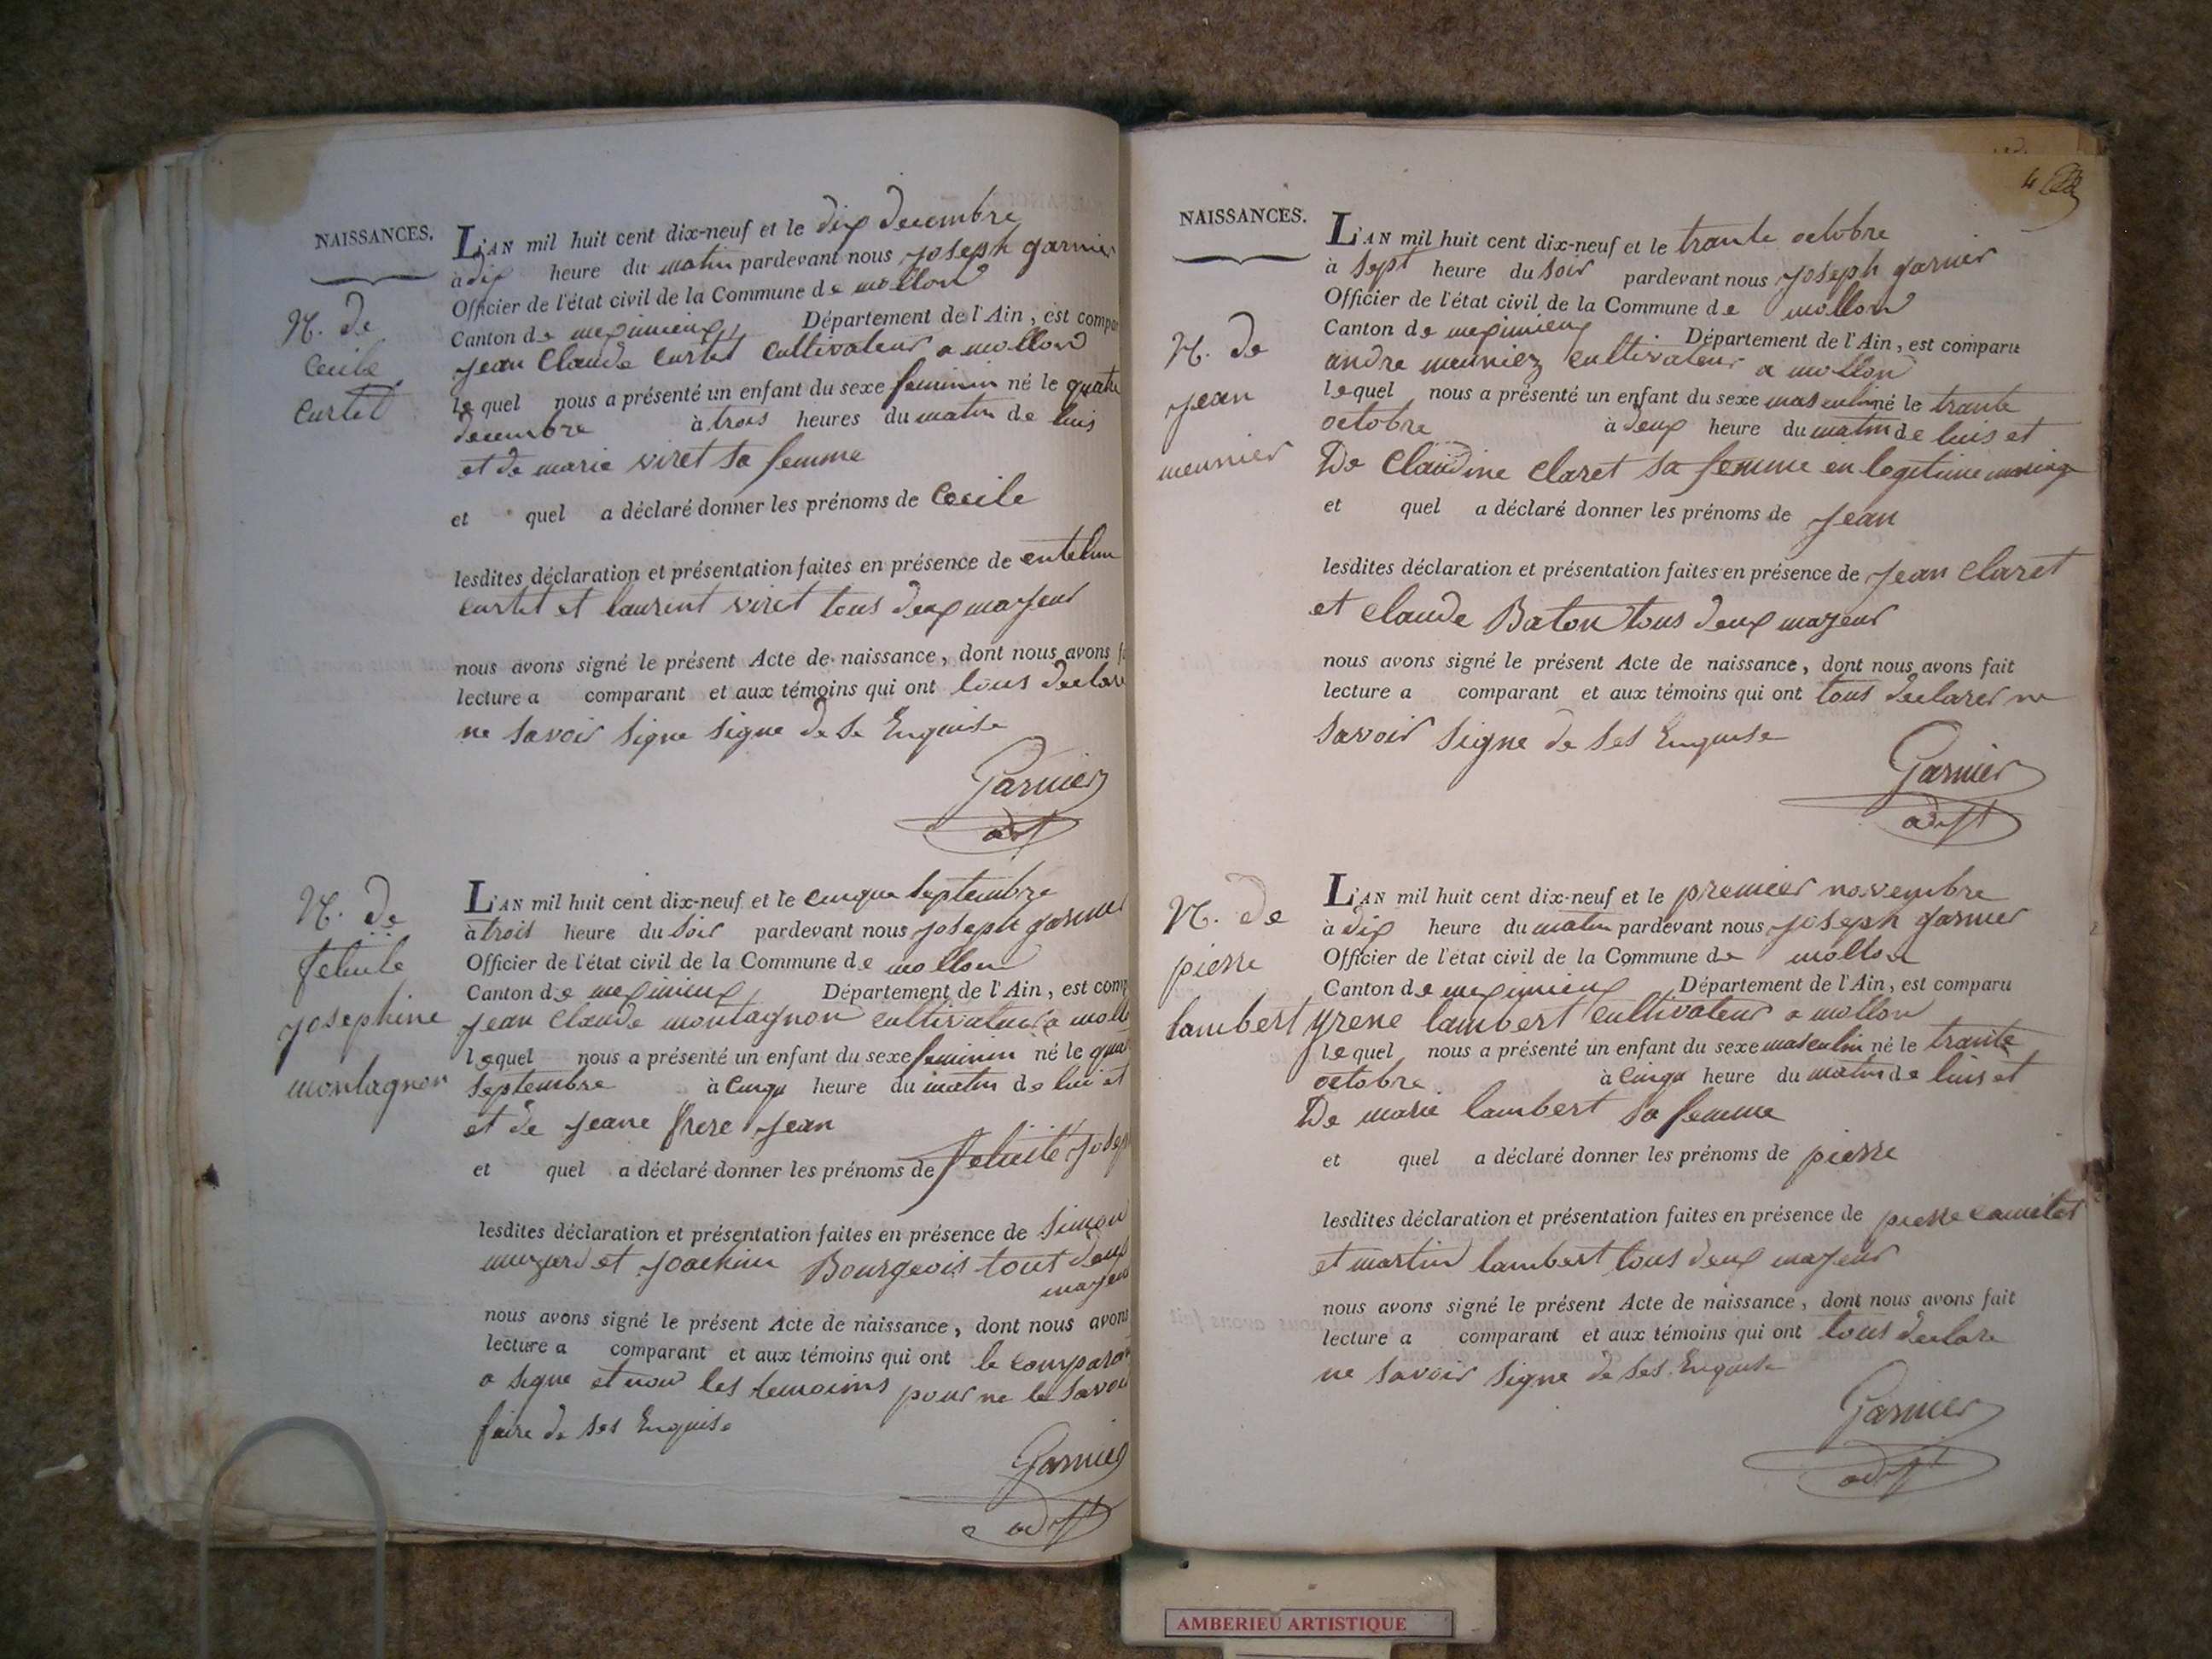 NAISSANCES.
N. de
Cecile
Curtet
L'AN mil huit cent dix-neuf et le dix decembre
à dix heure du matin pardevant nous joseph garnier
Officier de l'état civil de la Commune de mollon
Canton de meximieux Département de l'Ain, est compa
jean Claude Curtet Cultivateur a mollon
lequel nous a présenté un enfant du sexe feminin né le quatre
decembre à trois heures du matin de luis
et de marie viret sa femme
et quel a déclaré donner les prénoms de Cecile
lesdites déclaration et présentation faites en présence de
curtet et laurent viret tous deux majeur
nous avons signé le présent Acte de naissance, dont nous avons f
lecture a comparant et aux témoins qui ont tous declare
ne savoir signe signe de se Enquise
Garnier
adjt
N. de
felicite
josephine
montagnon
L'AN mil huit cent dix-neuf et le cinque septembre
à trois heure du soir pardevant nous joseph garnier
Officier de l'état civil de la Commune de mollon
Canton de meximieux Département de l'Ain, est comp
jean claude montagnon cultivateur a moll
lequel nous a présenté un enfant du sexe feminin né le qua
septembre à cinqu heure du matin de lui et
et de jeane frere jean
et quel a déclaré donner les prénoms de felicité josep
lesdites déclaration et présentation faites en présence de simon
muzard et joackim Bourgeois tout deux
majeur
nous avons signé le présent Acte de naissance, dont nous avons
lecture a comparant et aux témoins qui ont le comparant
a signe et non les temoims pour ne le savoir
faire de ses Enquise
Garnier
adjt
4
NAISSANCES.
N. de
jean
meunier
L'AN mil huit cent dix-neuf et le trante octobre
à sept heure du soir pardevant nous joseph garnier
Officier de l'état civil de la Commune de mollon
Canton de meximieux Département de l'Ain, est comparu
andre meuniez cultivateur a mollon
lequel nous a présenté un enfant du sexe masculin né le trante
octobre à deux heure du matin de luis et
De Claudine Claret sa femme en legitime mariage
et quel a déclaré donner les prénoms de jean
lesdites déclaration et présentation faites en présence de jean Claret
et Claude Baton tous deux majeur
nous avons signé le présent Acte de naissance, dont nous avons fait
lecture a comparant et aux témoins qui ont tous declarer ne
savoir signe de ses Enquise
Garnier
adjt
N. de
pierre
lambert
L'AN mil huit cent dix-neuf et le premier novembre
à dix heure du matin pardevant nous joseph garnier
Officier de l'état civil de la Commune de mollon
Canton de meximieux Département de l'Ain, est comparu
yrene lambert Cultivateur a mollon
lequel nous a présenté un enfant du sexe masculin né le trante
octobre à cinqu heure du matin de luis et
De marie lambert sa femme
et quel a déclaré donner les prénoms de pierre
lesdites déclaration et présentation faites en présence de pierre
et martin lambert tous deux majeur
nous avons signé le présent Acte de naissance, dont nous avons fait
lecture a comparant et aux témoins qui ont tous declare
ne savoir signe de ses Enquise
Garnier
adjt
AMBERIEU ARTISTIQUE